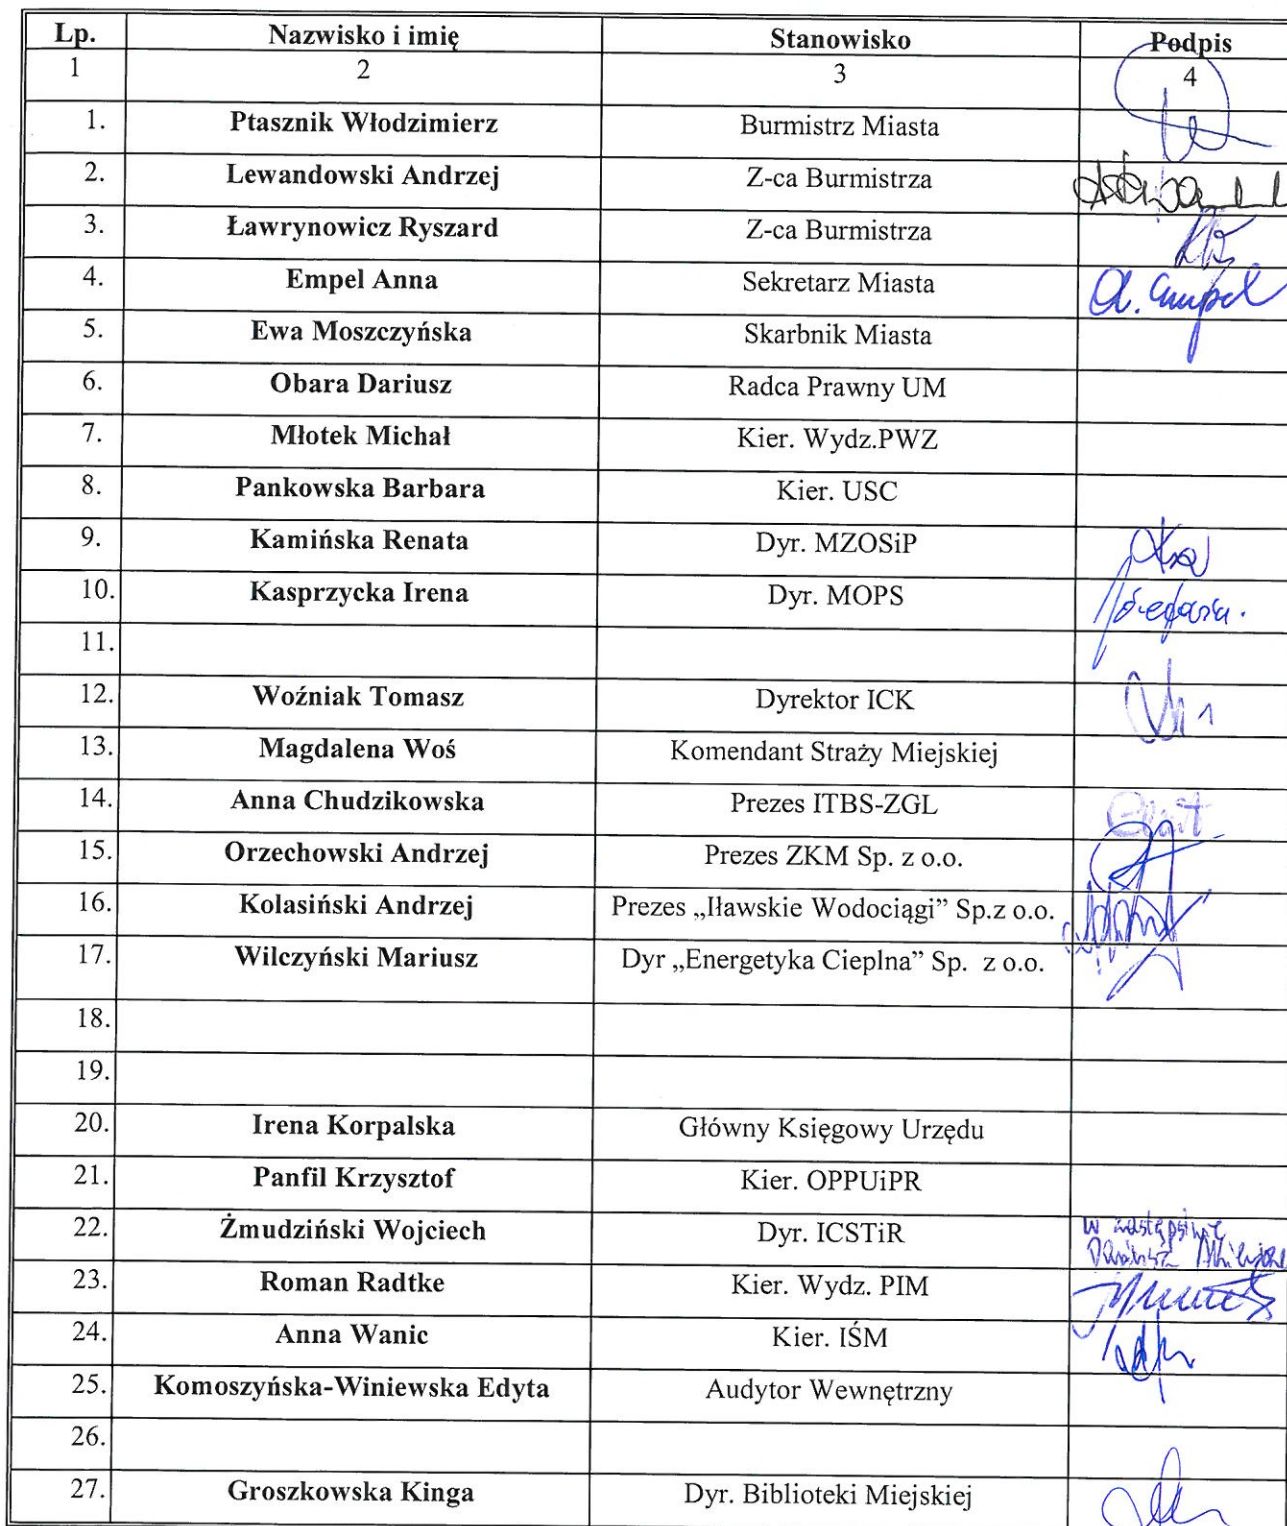 Lp. Nazwisko i imię Stanowisko Podpis
1 2 3 4
1. Ptasznik Włodzimierz Burmistrz Miasta
2. Lewandowski Andrzej Z-ca Burmistrza
3. Ławrynowicz Ryszard Z-ca Burmistrza
4. Empel Anna Sekretarz Miasta A. Empel
5. Ewa Moszczyńska Skarbnik Miasta
6. Obara Dariusz Radca Prawny UM
7. Młotek Michał Kier. Wydz.PWZ
8. Pankowska Barbara Kier. USC
9. Kamińska Renata Dyr. MZOSiP
10. Kasprzycka Irena Dyr. MOPS
11.
12. Woźniak Tomasz Dyrektor ICK
13. Magdalena Woś Komendant Straży Miejskiej
14. Anna Chudzikowska Prezes ITBS-ZGL
15. Orzechowski Andrzej Prezes ZKM Sp. z o.o.
16. Kolasiński Andrzej Prezes „Iławskie Wodociągi” Sp.z o.o.
17. Wilczyński Mariusz Dyr „Energetyka Cieplna” Sp. z o.o.
18.
19.
20. Irena Korpalska Główny Księgowy Urzędu
21. Panfil Krzysztof Kier. OPPUiPR
22. Żmudziński Wojciech Dyr. ICSTiR W zastępstwie
23. Roman Radtke Kier. Wydz. PIM
24. Anna Wanic Kier. IŚM
25. Komoszyńska-Winiewska Edyta Audytor Wewnętrzny
26.
27. Groszkowska Kinga Dyr. Biblioteki Miejskiej